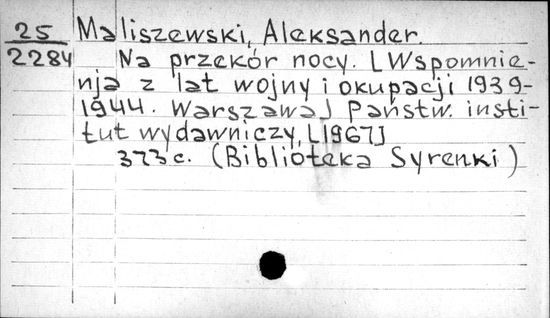 25 Maliszewski, Aleksander.
2284 Na przekór nocy. [Wspomnie-
nja z lat wojny i okupacji 1939-
1944. Warszawa] Państw. insti-
tut wydawniczy, [1967]
373 c. (Biblioteka Syrenki)